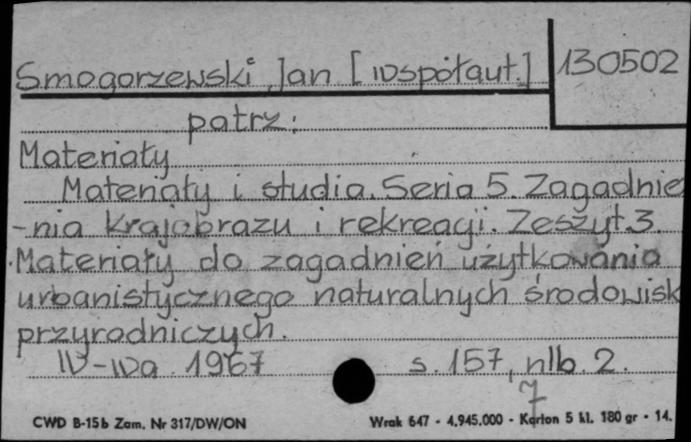 Smogorzewski Jan [współaut.] 130502
patrz:
Materiały
Materiały i studia. Seria 5. Zagadnie
-nia krajobrazu i rekreacji. Zeszyt 3.
Materiały do zagadnień użytkowania
urbanistycznego naturalnych środowisk
przyrodniczych.
W-wa 1967 s. 157, nlb. 2.
7
CWD B-15b Zam. Nr 317/DW/ON Wrak 647 - 4.945.000 - Karton 5 kl. 180 gr - 14.